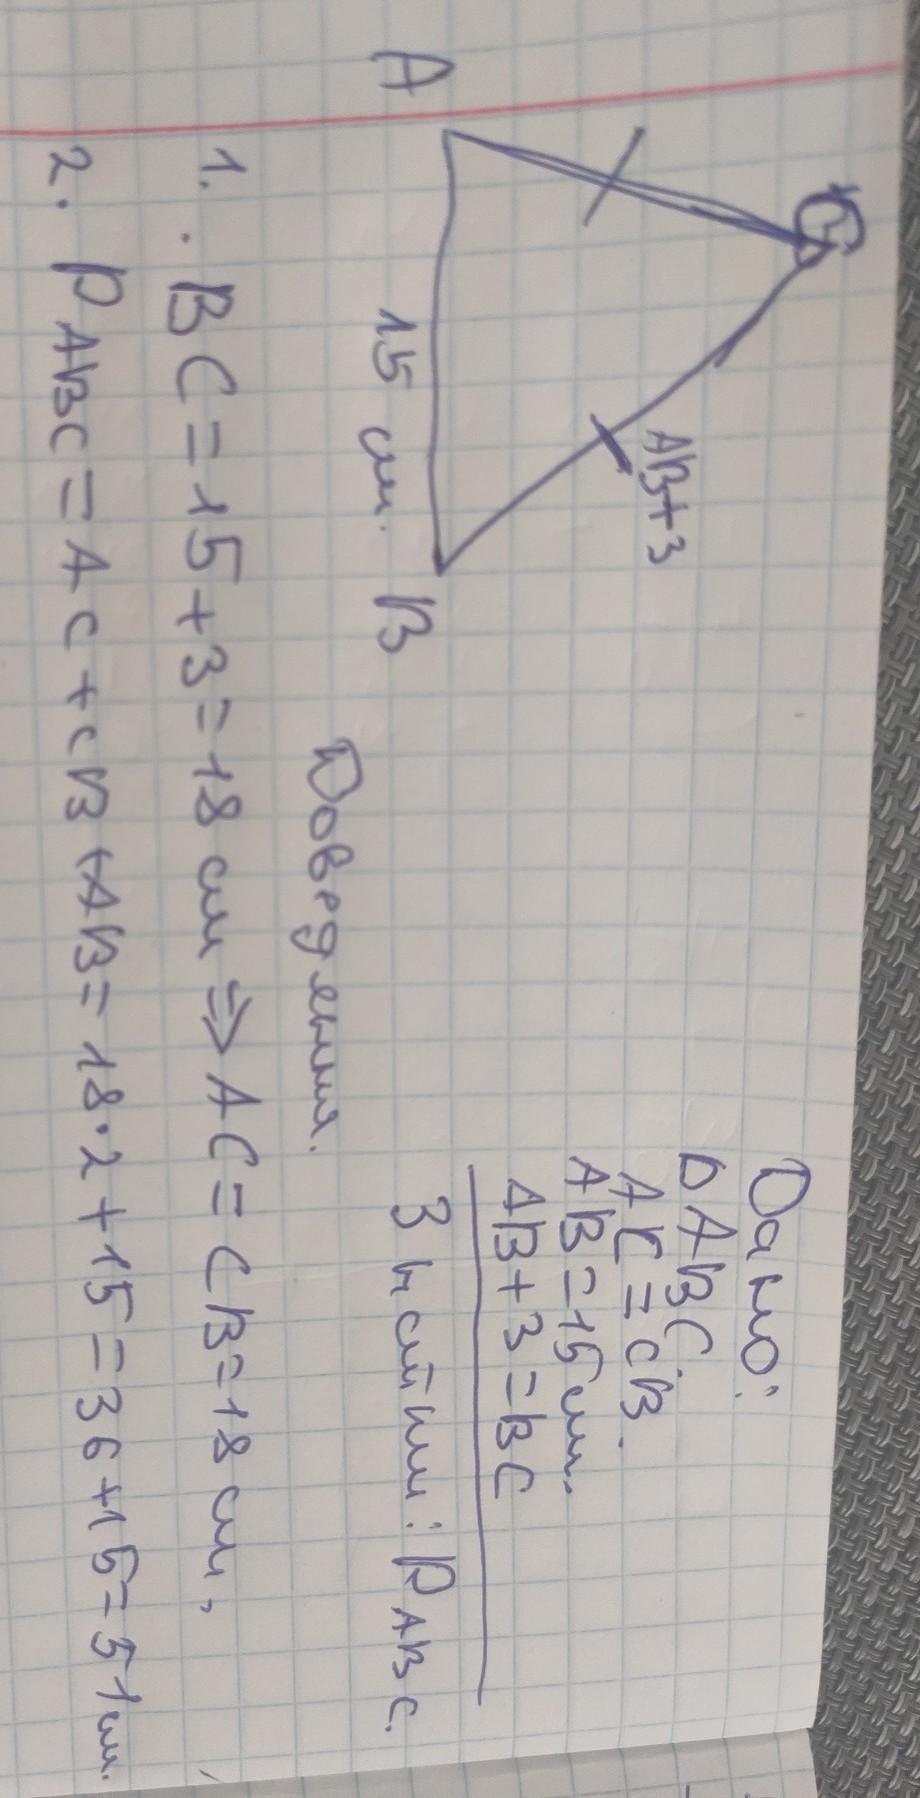 C
AB+3
A
15 см.
B
Дано:
△ABC
AC=CB.
AB=15см.
AB+3=BC
З н ст им: PABC.
Доведення.
1. BC=15+3=18 см ⇒ AC=CB=18 см,
2. PABC=AC+CB+AB=18·2+15=36+15=51см.